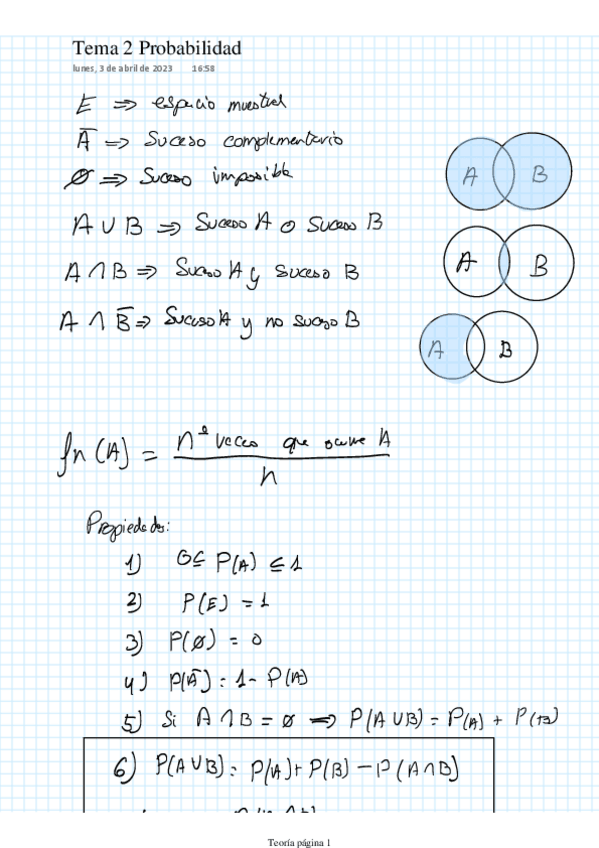 Tema 2 Probabilidad
lunes, 3 de abril de 2023 16:58
E => espacio muestral
A̅ => Suceso complementario
Ø => Suceso imposible
A ∪ B => Suceso A o Suceso B
A ∩ B => Suceso A y Suceso B
A ∩ B̅ => Suceso A y no suceso B
A B
A B
A B
fn (A) = nº veces que ocurre A
n
Propiedades:
1) 0 ≤ P(A) ≤ 1
2) P(E) = 1
3) P(Ø) = 0
4) P(A̅) = 1 - P(A)
5) Si A ∩ B = Ø => P(A ∪ B) = P(A) + P(B)
6) P(A ∪ B) = P(A) + P(B) - P(A ∩ B)
Teoría página 1